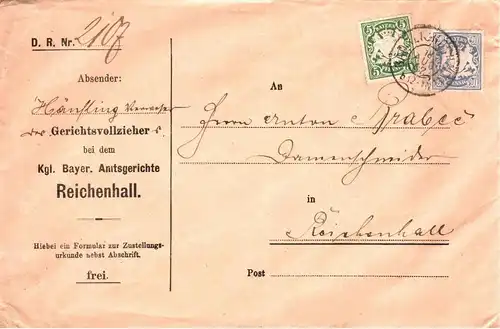 D. R. Nr. 2107
Absender:
Gerichtsvollzieher
bei dem
Kgl. Bayer. Amtsgerichte
Reichenhall.
Hiebei ein Formular zur Zustellungs-
urkunde nebst Abschrift.
frei.
An
Herrn Anton Grabec
Damenschneider
in
Reichenhall
Post
5
5